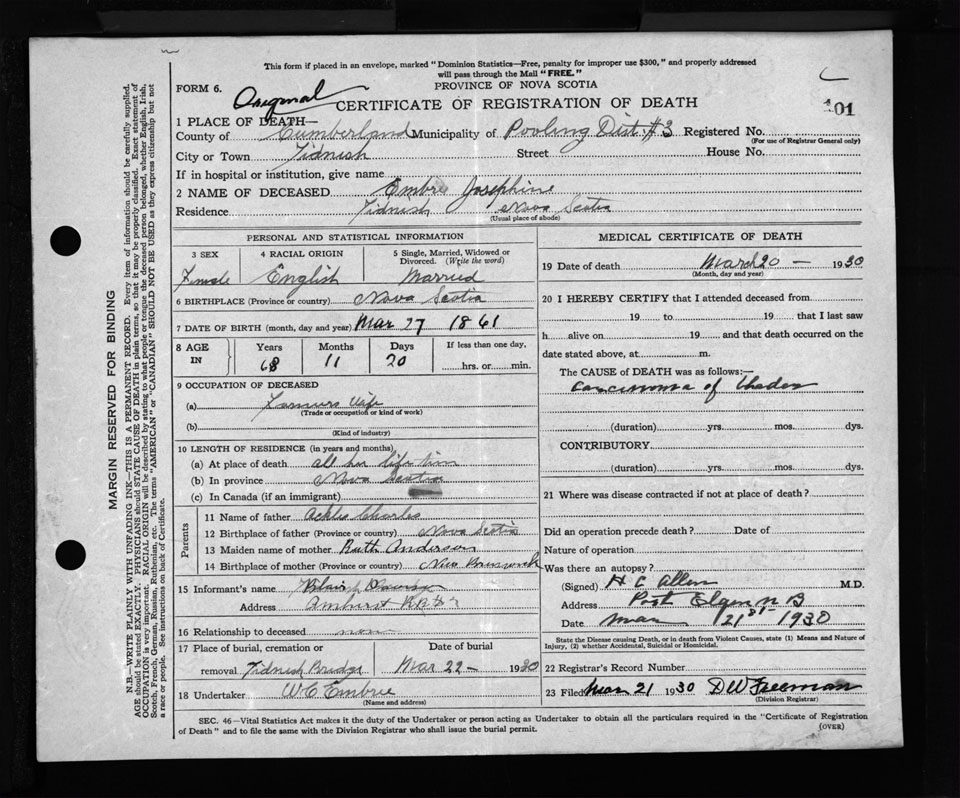 This form if placed in an envelope, marked "Dominion Statistics—Free, penalty for improper use $300," and properly addressed
will pass through the Mail "FREE."
FORM 6.
PROVINCE OF NOVA SCOTIA
Original
CERTIFICATE OF REGISTRATION OF DEATH
101
1 PLACE OF DEATH—
County of Cumberland Municipality of Pooling Dist. #3 Registered No.
(For use of Registrar General only)
City or Town Tidnish Street House No.
If in hospital or institution, give name
2 NAME OF DECEASED Embree Josephine
Residence Tidnish Nova Scotia
(Usual place of abode)
PERSONAL AND STATISTICAL INFORMATION
3 SEX 4 RACIAL ORIGIN 5 Single, Married, Widowed or
Divorced. (Write the word)
Female English Married
6 BIRTHPLACE (Province or country) Nova Scotia
7 DATE OF BIRTH (month, day and year) Mar 27 1861
8 AGE IN Years Months Days If less than one day,
68 11 20 hrs. or min.
9 OCCUPATION OF DECEASED
(a) Farmers Wife
(Trade or occupation or kind of work)
(b)
(Kind of industry)
10 LENGTH OF RESIDENCE (in years and months)
(a) At place of death all her life time
(b) In province Nova Scotia
(c) In Canada (if an immigrant)
Parents
11 Name of father Ackles Charles
12 Birthplace of father (Province or country) Nova Scotia
13 Maiden name of mother Ruth Anderson
14 Birthplace of mother (Province or country) New Brunswick
15 Informant's name
Address Amherst
16 Relationship to deceased non
17 Place of burial, cremation or Date of burial
removal Tidnish Bridge Mar 22 – 1930
18 Undertaker W C Embree
(Name and address)
MEDICAL CERTIFICATE OF DEATH
19 Date of death March 20 – 1930
(Month, day and year)
20 I HEREBY CERTIFY that I attended deceased from
19 to 19 that I last saw
h alive on 19 and that death occurred on the
date stated above, at m.
The CAUSE of DEATH was as follows:—
Carcinoma of
(duration) yrs. mos. dys.
CONTRIBUTORY
(duration) yrs. mos. dys.
21 Where was disease contracted if not at place of death?
Did an operation precede death? Date of
Nature of operation
Was there an autopsy?
(Signed) H C Allen M.D.
Address Port Elgin N B
Date Mar 21st 1930
State the Disease causing Death, or in death from Violent Causes, state (1) Means and Nature of
Injury, (2) whether Accidental, Suicidal or Homicidal.
22 Registrar's Record Number
23 Filed Mar 21 1930 D W Freeman
(Division Registrar)
SEC. 46—Vital Statistics Act makes it the duty of the Undertaker or person acting as Undertaker to obtain all the particulars required in the "Certificate of Registration
of Death" and to file the same with the Division Registrar who shall issue the burial permit.
(OVER)
MARGIN RESERVED FOR BINDING
N.B.—WRITE PLAINLY WITH UNFADING INK—THIS IS A PERMANENT RECORD. Every item of information should be carefully supplied.
AGE should be stated EXACTLY. PHYSICIANS should STATE CAUSE OF DEATH in plain terms, so that it may be properly classified. Exact statement of
OCCUPATION is very important. RACIAL ORIGIN will be described by stating to what people or tongue the deceased person belonged, whether English, Irish,
Scotch, French, German, Russian, Ruthenian, etc. The terms "AMERICAN" or "CANADIAN" SHOULD NOT BE USED as they express citizenship but not
a race or people. See instructions on back of Certificate.